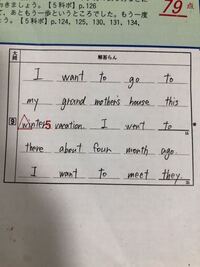 きましょう。【5科ポ】p.126
て、あともう一歩というところでした。もう一度
う。【5科ポ】p.124, 125, 130, 131, 134,
79点
解答らん
I want to go to
my grand mother's house this
9 winter5 vacation. I went to
there about four month ago.
I want to meet they.